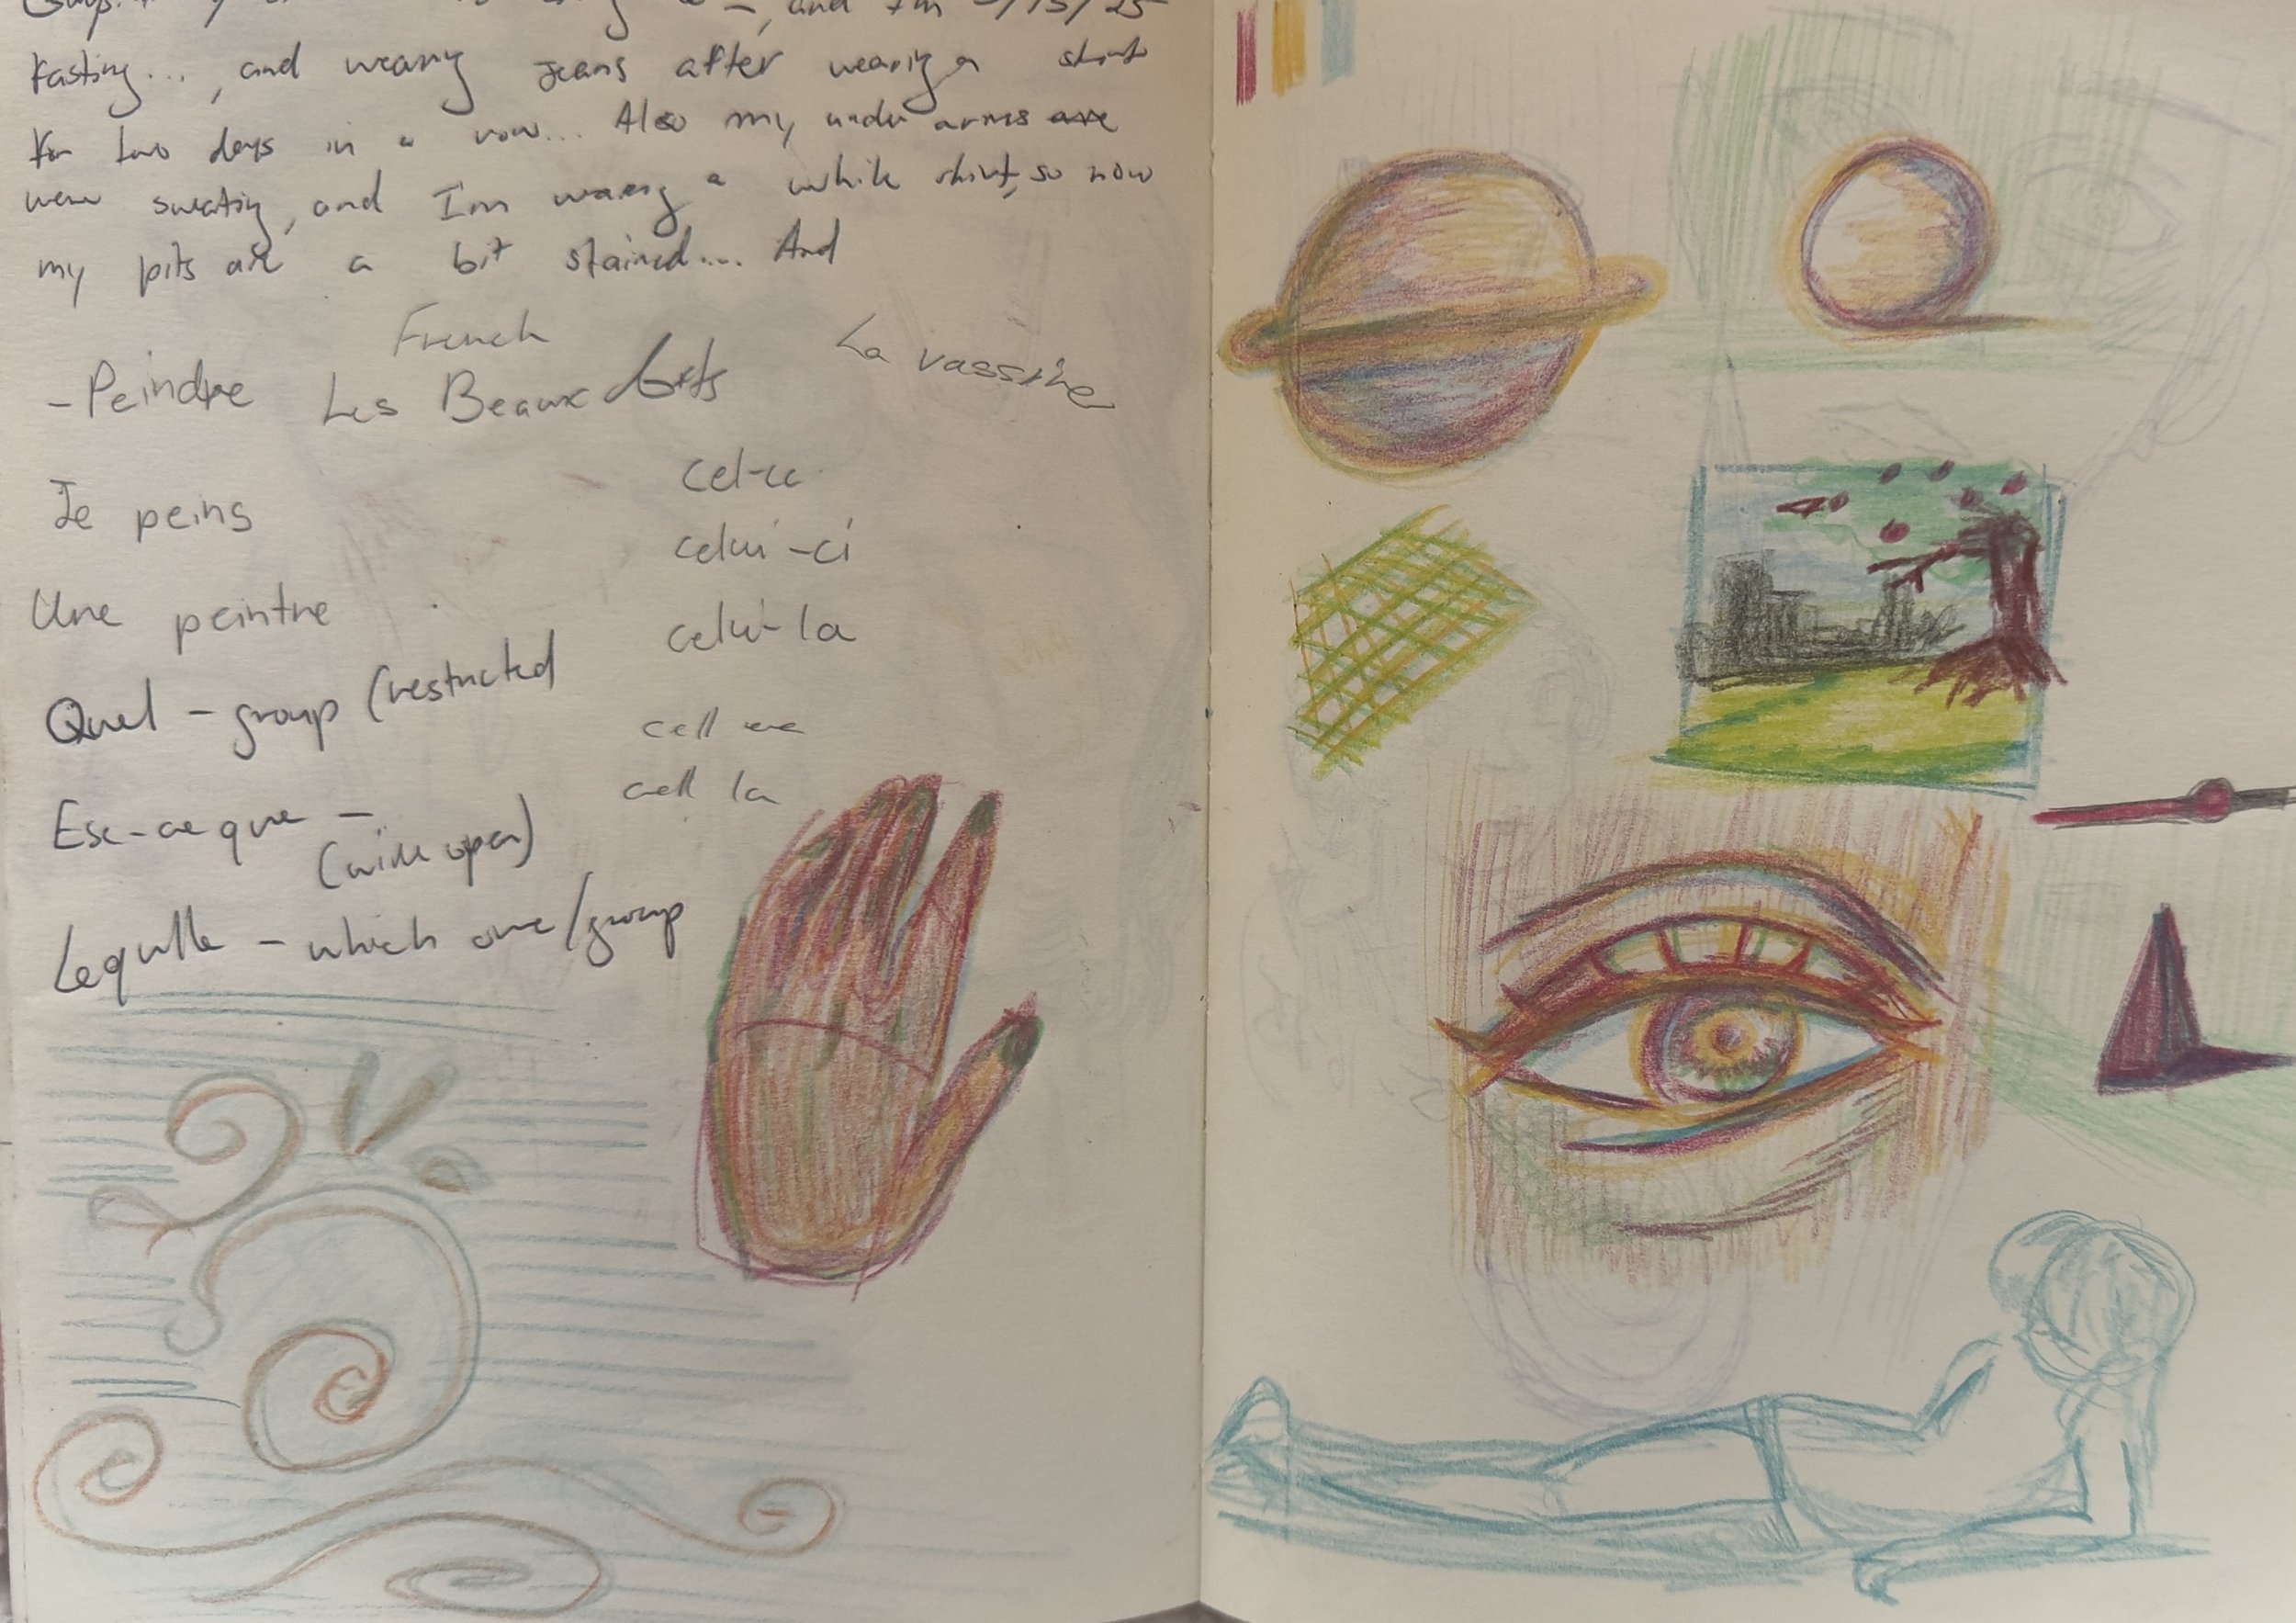 and I'm /15/25
Fasting..., and wearing jeans after wearing a shirt
for two days in a row... Also my under arms are
were sweating, and I'm wearing a white shirt, so now
my pits are a bit stained.... And
French
-Peindre Les Beaux Arts La vassine
Je peins
cel-cc
celui-ci
Une peintre
celui-la
Quel - group (restricted
cell ce
Esc-ce que -
(wide open)
cell la
Lequlle - which one/group